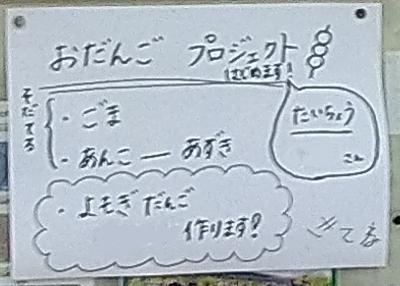 おだんご プロジェクト
はじめます!
そだてる
・ごま
・あんこ ― あずき
たいちょう
さん
・よもぎだんご
作ります?